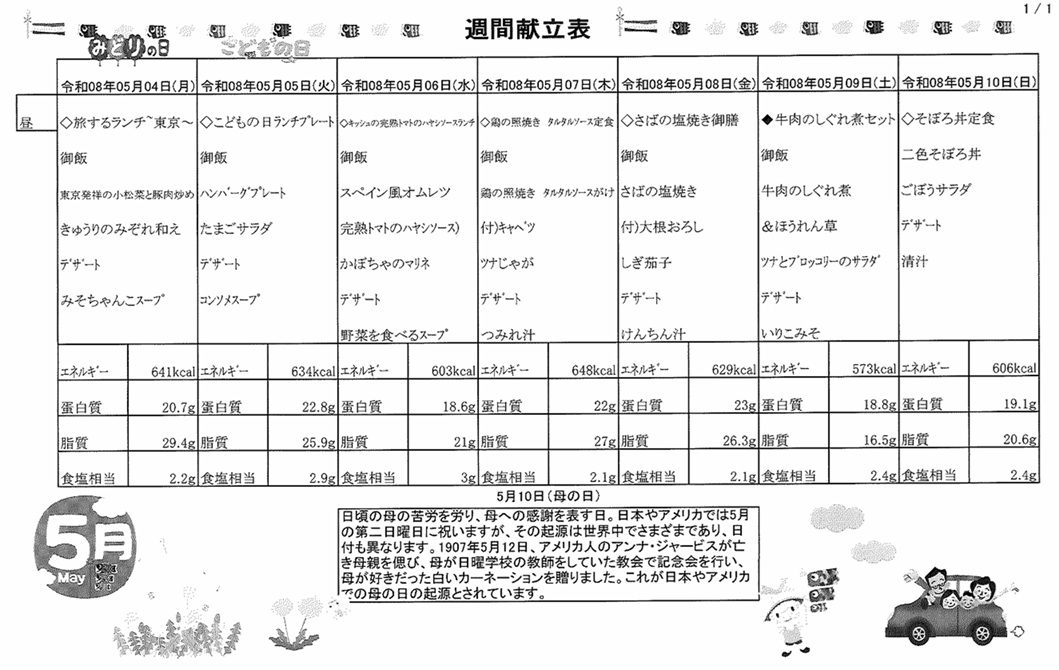 1 / 1
週間献立表
みどりの日
こどもの日
令和08年05月04日(月) 令和08年05月05日(火) 令和08年05月06日(水) 令和08年05月07日(木) 令和08年05月08日(金) 令和08年05月09日(土) 令和08年05月10日(日)
昼 ◇旅するランチ~東京~ ◇こどもの日ランチプレート ◇キッシュの完熟トマトのハヤシソースランチ ◇鶏の照焼き タルタルソース定食 ◇さばの塩焼き御膳 ◆牛肉のしぐれ煮セット ◇そぼろ丼定食
御飯 御飯 御飯 御飯 御飯 御飯 二色そぼろ丼
東京発祥の小松菜と豚肉炒め ハンバーグプレート スペイン風オムレツ 鶏の照焼き タルタルソースがけ さばの塩焼き 牛肉のしぐれ煮 ごぼうサラダ
きゅうりのみぞれ和え たまごサラダ 完熟トマトのハヤシソース) 付)キャベツ 付)大根おろし &ほうれん草 デザート
デザート デザート かぼちゃのマリネ ツナじゃが しぎ茄子 ツナとブロッコリーのサラダ 清汁
みそちゃんこスープ コンソメスープ デザート デザート デザート デザート
野菜を食べるスープ つみれ汁 けんちん汁 いりこみそ
エネルギー 641kcal エネルギー 634kcal エネルギー 603kcal エネルギー 648kcal エネルギー 629kcal エネルギー 573kcal エネルギー 606kcal
蛋白質 20.7g 蛋白質 22.8g 蛋白質 18.6g 蛋白質 22g 蛋白質 23g 蛋白質 18.8g 蛋白質 19.1g
脂質 29.4g 脂質 25.9g 脂質 21g 脂質 27g 脂質 26.3g 脂質 16.5g 脂質 20.6g
食塩相当 2.2g 食塩相当 2.9g 食塩相当 3g 食塩相当 2.1g 食塩相当 2.1g 食塩相当 2.4g 食塩相当 2.4g
5月10日(母の日)
日頃の母の苦労を労り、母への感謝を表す日。日本やアメリカでは5月
の第二日曜日に祝いますが、その起源は世界中でさまざまであり、日
付も異なります。1907年5月12日、アメリカ人のアンナ・ジャービスが亡
き母親を偲び、母が日曜学校の教師をしていた教会で記念会を行い、
母が好きだった白いカーネーションを贈りました。これが日本やアメリカ
での母の日の起源とされています。
5月
May